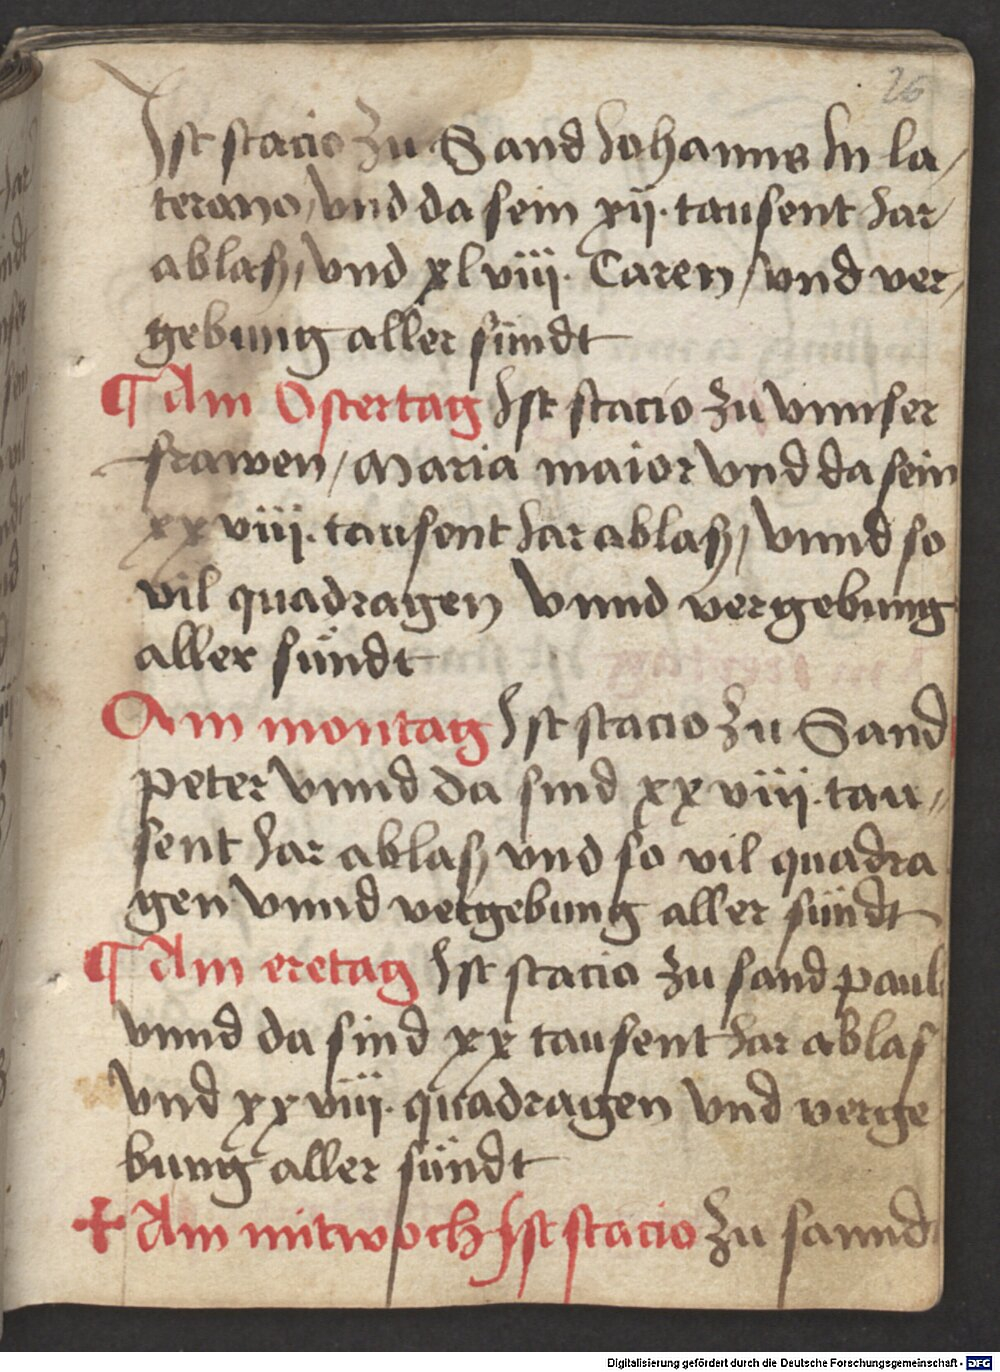 26
Ist stacio zu Sand Iohanns In la/
terano/ vnd da sein xij. tausent Iar
ablasz/ vnd xlviij. Caren/ vnd ver/
gebung aller sündt
¶ Am Ostertag Ist stacio zu vnnser
frawen/ Maria maior vnd da sein
xxviij. tausent Iar ablasz/ vnnd so
vil quadragen Vnnd vergebung
aller sündt
Am montag Ist stacio zu Sand
peter vnnd da sind xxviij. tau//
sent Iar ablasz vnd so vil quadra
gen vnnd vergebung aller sündt
¶ Am eretag Ist stacio zu sand paul
vnnd da sind xx tausent Iar ablas
vnd xxviij. quadragen vnd verge
bung aller sündt
✚ Am mitwoch Ist stacio zu sannd
Digitalisierung gefördert durch die Deutsche Forschungsgemeinschaft - DFG